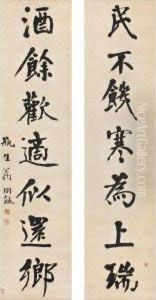 民不饑寒為上瑞
酒餘歡適似還鄉
瓶生翁同龢